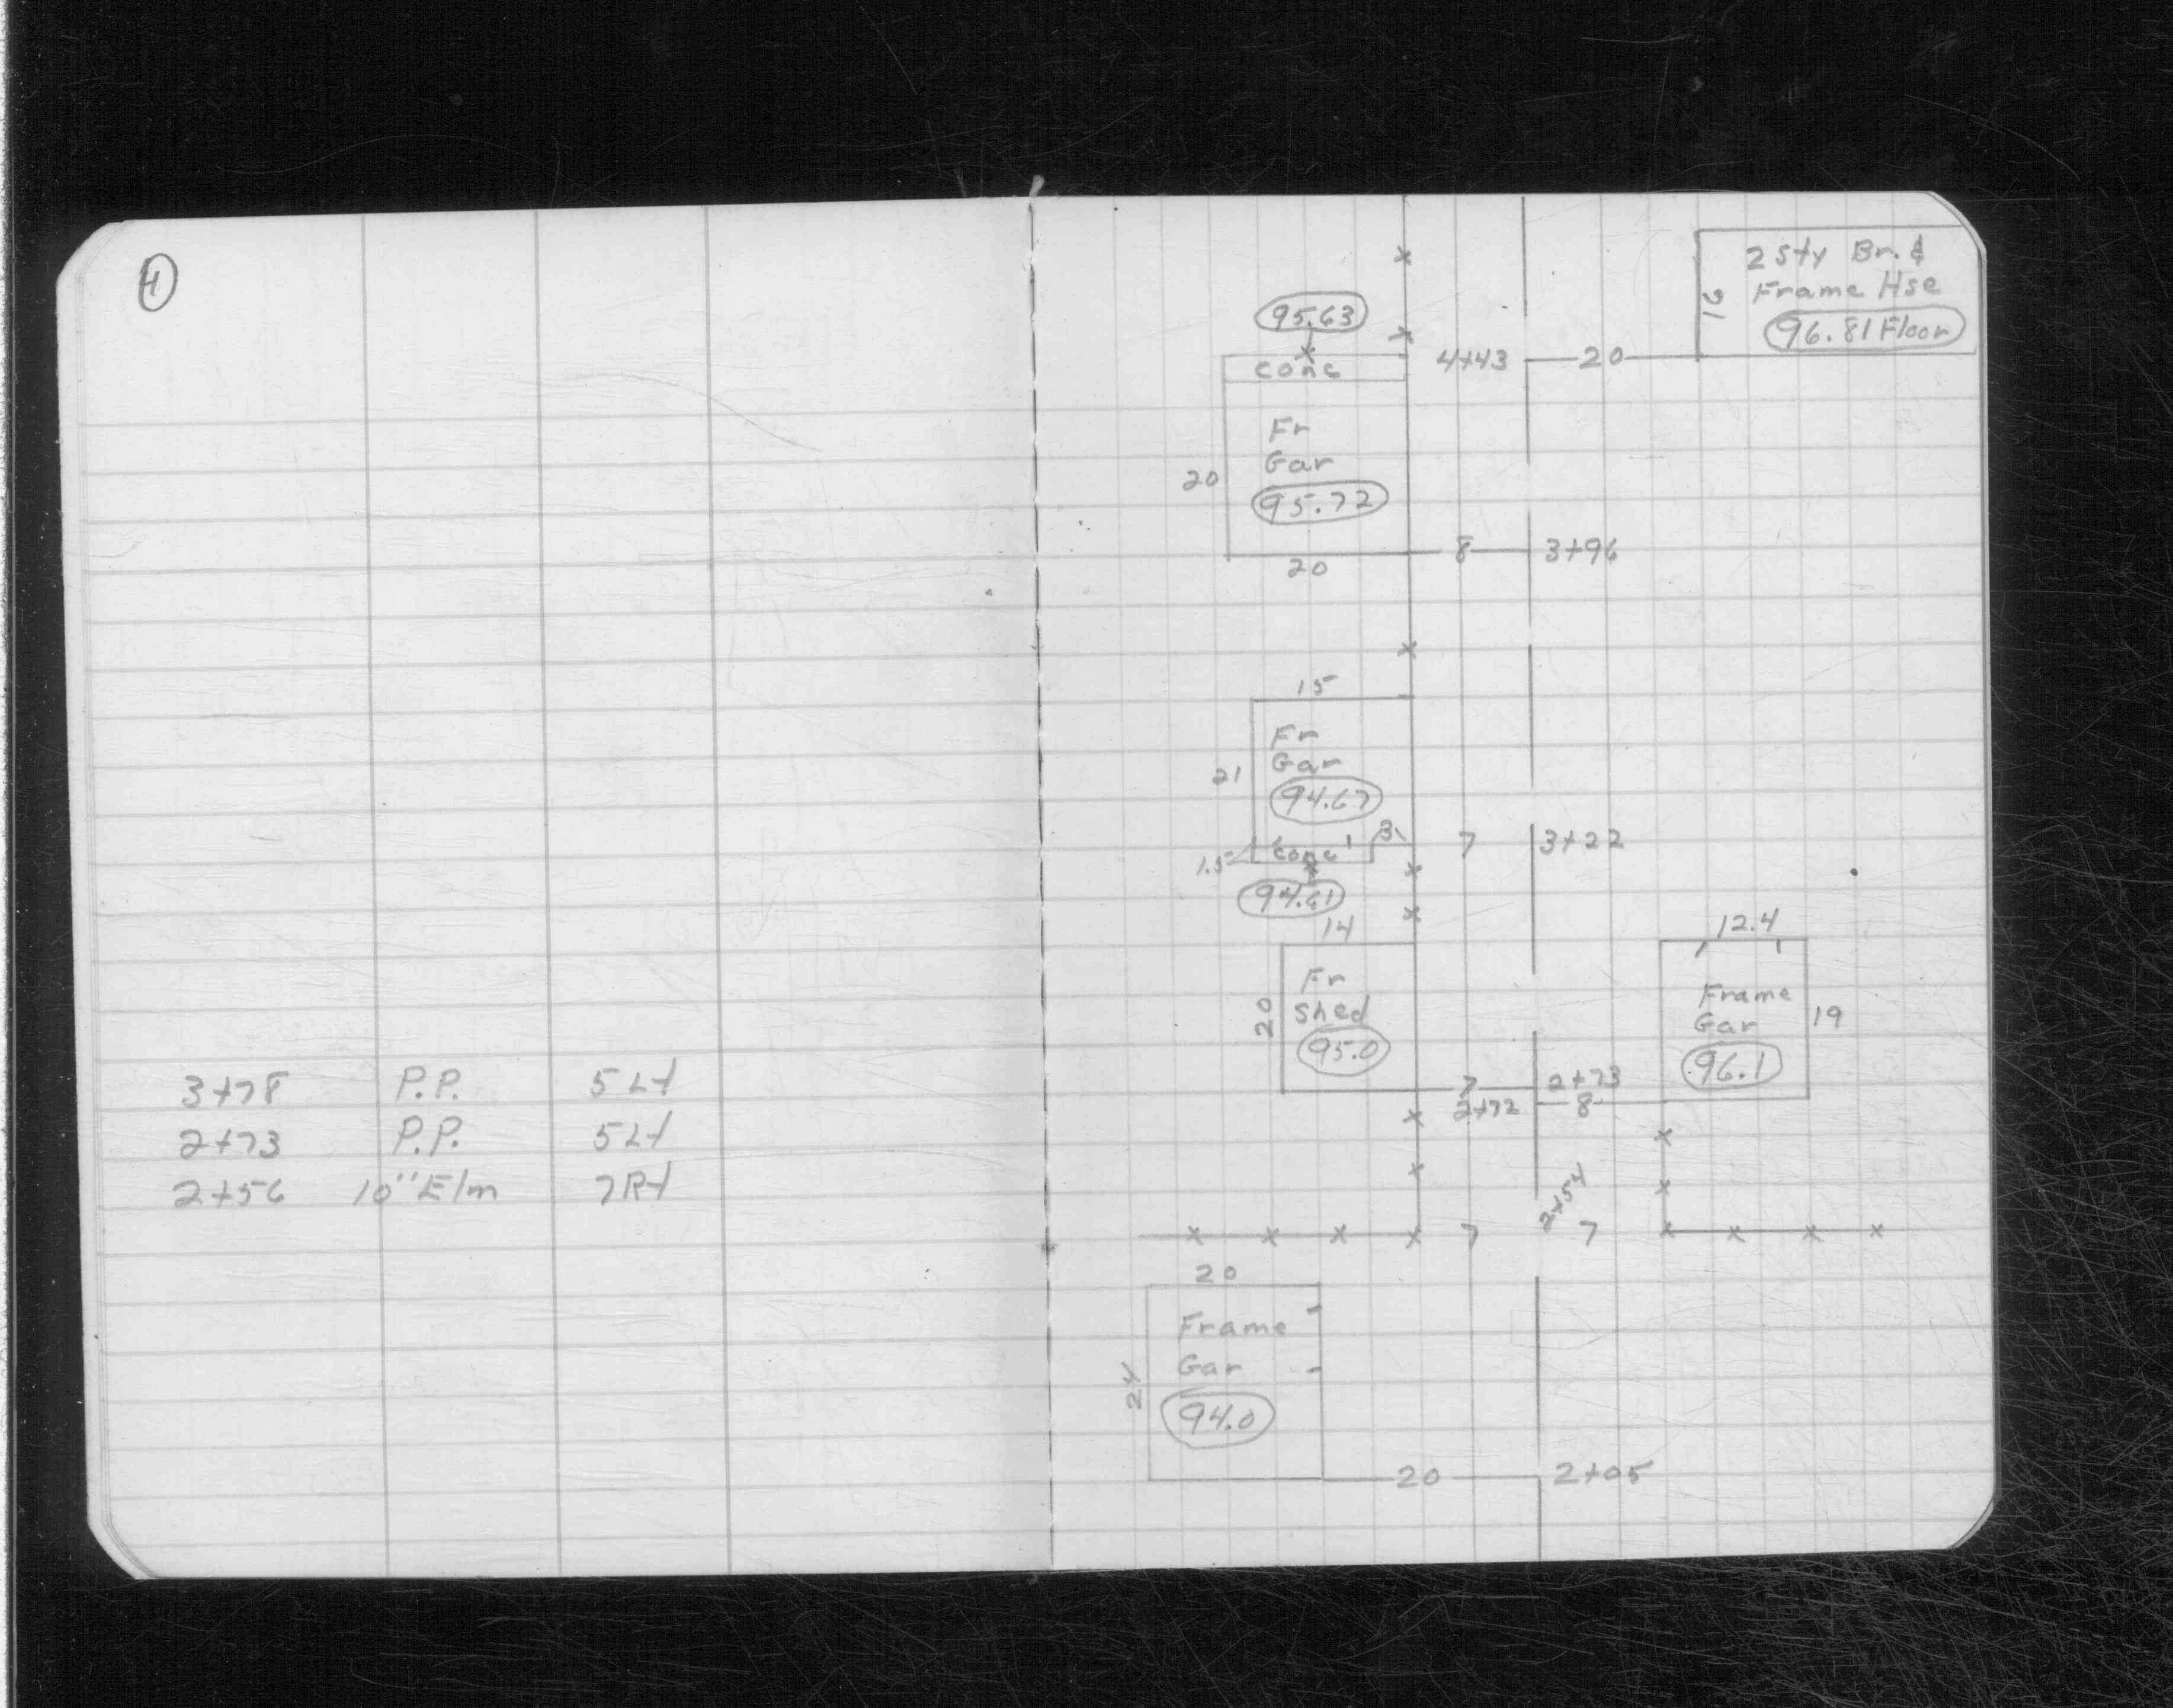 4
3+78 P.P. 5 Lt
2+73 P.P. 5 Lt
2+56 10" Elm 7 Rt
2 Sty Br. &
Frame Hse
96.81 Floor
95.63
conc
4+43 20
Fr
Gar
95.72
20
20
8 3+96
15
Fr
Gar
94.67
21
3
conc
1.5
94.61
7 3+22
14
Fr
Shed
95.0
20
12.4
Frame
Gar
96.1
19
7 2+73
2+72 8
2+54
7 7
20
Frame
Gar
94.0
24
20 2+05